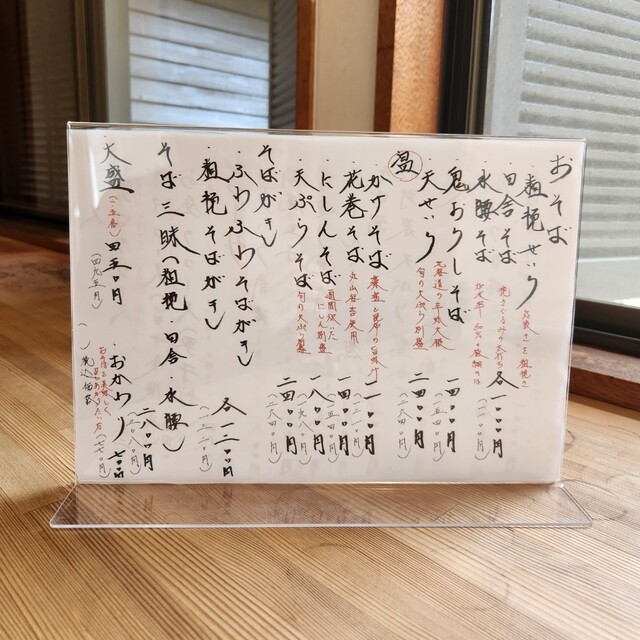 おそば
・粗挽せいろ
・田舎そば
・水腰そば
各一二〇〇円
・鬼おろしそば
一四〇〇円
（一五四〇円）
・天せいろ
旬の天ぷら別盛
二四〇〇円
（二六四〇円）
温
・かけそば
一一〇〇円
・花巻そば
丸山谷吉使用
一四〇〇円
（一五四〇円）
・にしんそば
にしん別盛
一八〇〇円
（一九八〇円）
・天ぷらそば
旬の天ぷら別盛
二四〇〇円
（二六四〇円）
そばがき
・ふわふわそばがき
・粗挽そばがき
各一二〇〇円
（一三二〇円）
そば三昧（粗挽・田舎・水腰）
二八〇〇円
（三〇八〇円）
・大盛
四五〇円
（四九五円）
・おかわり
七〇〇円
（七七〇円）
（　）税込価格